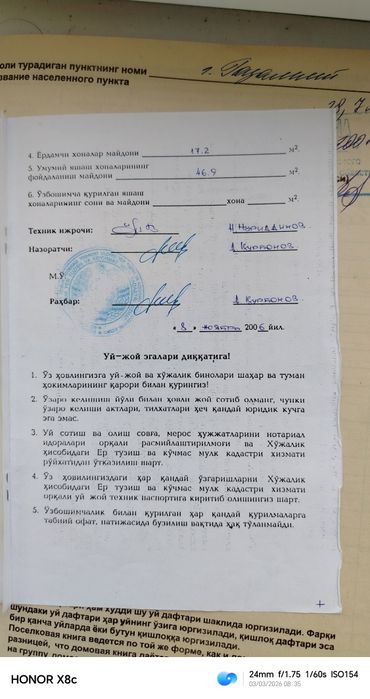 оли турадиган пунктнинг номи
звание населенного пункта
г. Газалкент
4. Ёрдамчи хоналар майдони 17.2 м².
5. Умумий яшаш хоналарининг
фойдаланиш майдони 46.9 м².
6. Ўзбошимча қурилган яшаш
хоналарининг сони ва майдони хона м².
Техник ижрочи: Н Нуриддинов
Назоратчи: А Курбонов
М.Ў.
Раҳбар: А Курбонов
" 8 " ноябрь 2006 йил.
Уй-жой эгалари диққатига!
1. Ўз ҳовлингизга уй-жой ва хўжалик бинолари шаҳар ва туман
ҳокимларининг қарори билан қурингиз!
2. Ўзаро келишиш йўли билан ҳовли жой сотиб олманг, чунки
ўзаро келиши актлари, тилхатлари ҳеч қандай юридик кучга
эга эмас.
3. Уй сотиш ва олиш совға, мерос ҳужжатларини нотариал
идоралари орқали расмийлаштирилмоғи ва Хўжалик
ҳисобидаги Ер тузиш ва кўчмас мулк кадастри хизмати
рўйхатидан ўтказилиш шарт.
4. Ўз ҳовлингиздаги ҳар қандай ўзгаришларни Хўжалик
ҳисобидаги Ер тузиш ва кўчмас мулк кадастри хизмати
орқали уй жой техник паспортига киритиб олишингиз шарт.
5. Ўзбошимчалик билан қурилган ҳар қандай қурилмаларга
табиий офат, натижасида бузилиш вақтида ҳақ тўланмайди.
ҳам худди шу уй дафтари шаклида юргизилади. Фарқи
шундаки уй дафтари ҳар уйнинг ўзига юргизилади, қишлоқ дафтари эса
бир қанча уйларда ёки бутун қишлоққа юргизилади.
Поселковая книга ведется по той же форме, как и
разницей, что домовая книга
на группу
HONOR X8c
24mm f/1.75 1/60s ISO154
03/03/2026 08:35